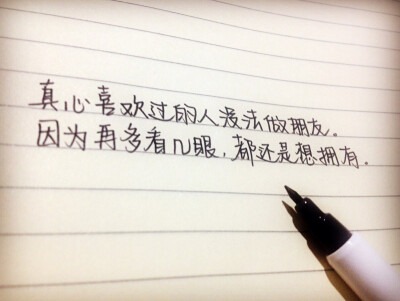 真心喜欢过的人没法做朋友。
因为再多看几眼，都还是想拥有。